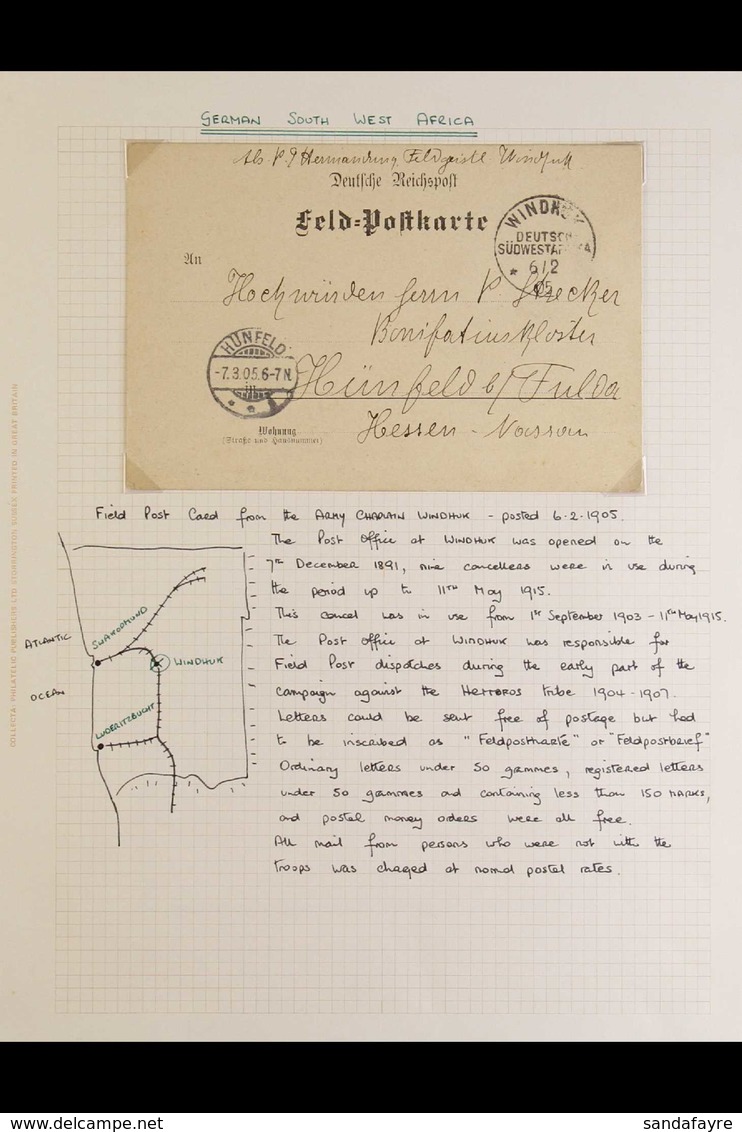 GERMAN SOUTH WEST AFRICA
Abs. P. J. Hermandung Feldgeistl. Windhuk
Deutsche Reichspost
Feld=Postkarte
WINDHUK
DEUTSCH
SÜDWESTAFRIKA
* 6/2
05
An
Hochwürden Herrn P. Strecker
Bonifatiuskloster
HÜNFELD
-7.3.05.6-7N.
Hünfeld b/ Fulda
Hessen - Nassau
Wohnung
(Straße und Hausnummer)
Field Post Card from the ARMY CHAPLAIN WINDHUK - posted 6-2-1905.
The Post Office at WINDHUK was opened on the
7th December 1891, nine cancellers were in use during
the period up to 11TH May 1915.
This cancel was in use from 1st September 1903 - 11th May 1915.
The Post office at WINDHUK was responsible for
Field Post dispatches during the early part of the
campaign against the HERREROS tribe 1904-1907.
Letters could be sent free of postage but had
to be inscribed as "Feldpostkarte" or "Feldpostbrief"
Ordinary letters under 50 grammes, registered letters
under 50 grammes and containing less than 150 MARKS,
and postal money orders were all free.
All mail from persons who were not with the
troops was chaged at normal postel rates.
ATLANTIC
OCEAN
SWAKOPMUND
WINDHUK
LUDERITZBUCHT
COLLECTA: PHILATELIC PUBLISHERS LTD STORRINGTON SUSSEX PRINTED IN GREAT BRITAIN
www.delcampe.net
sandafayre